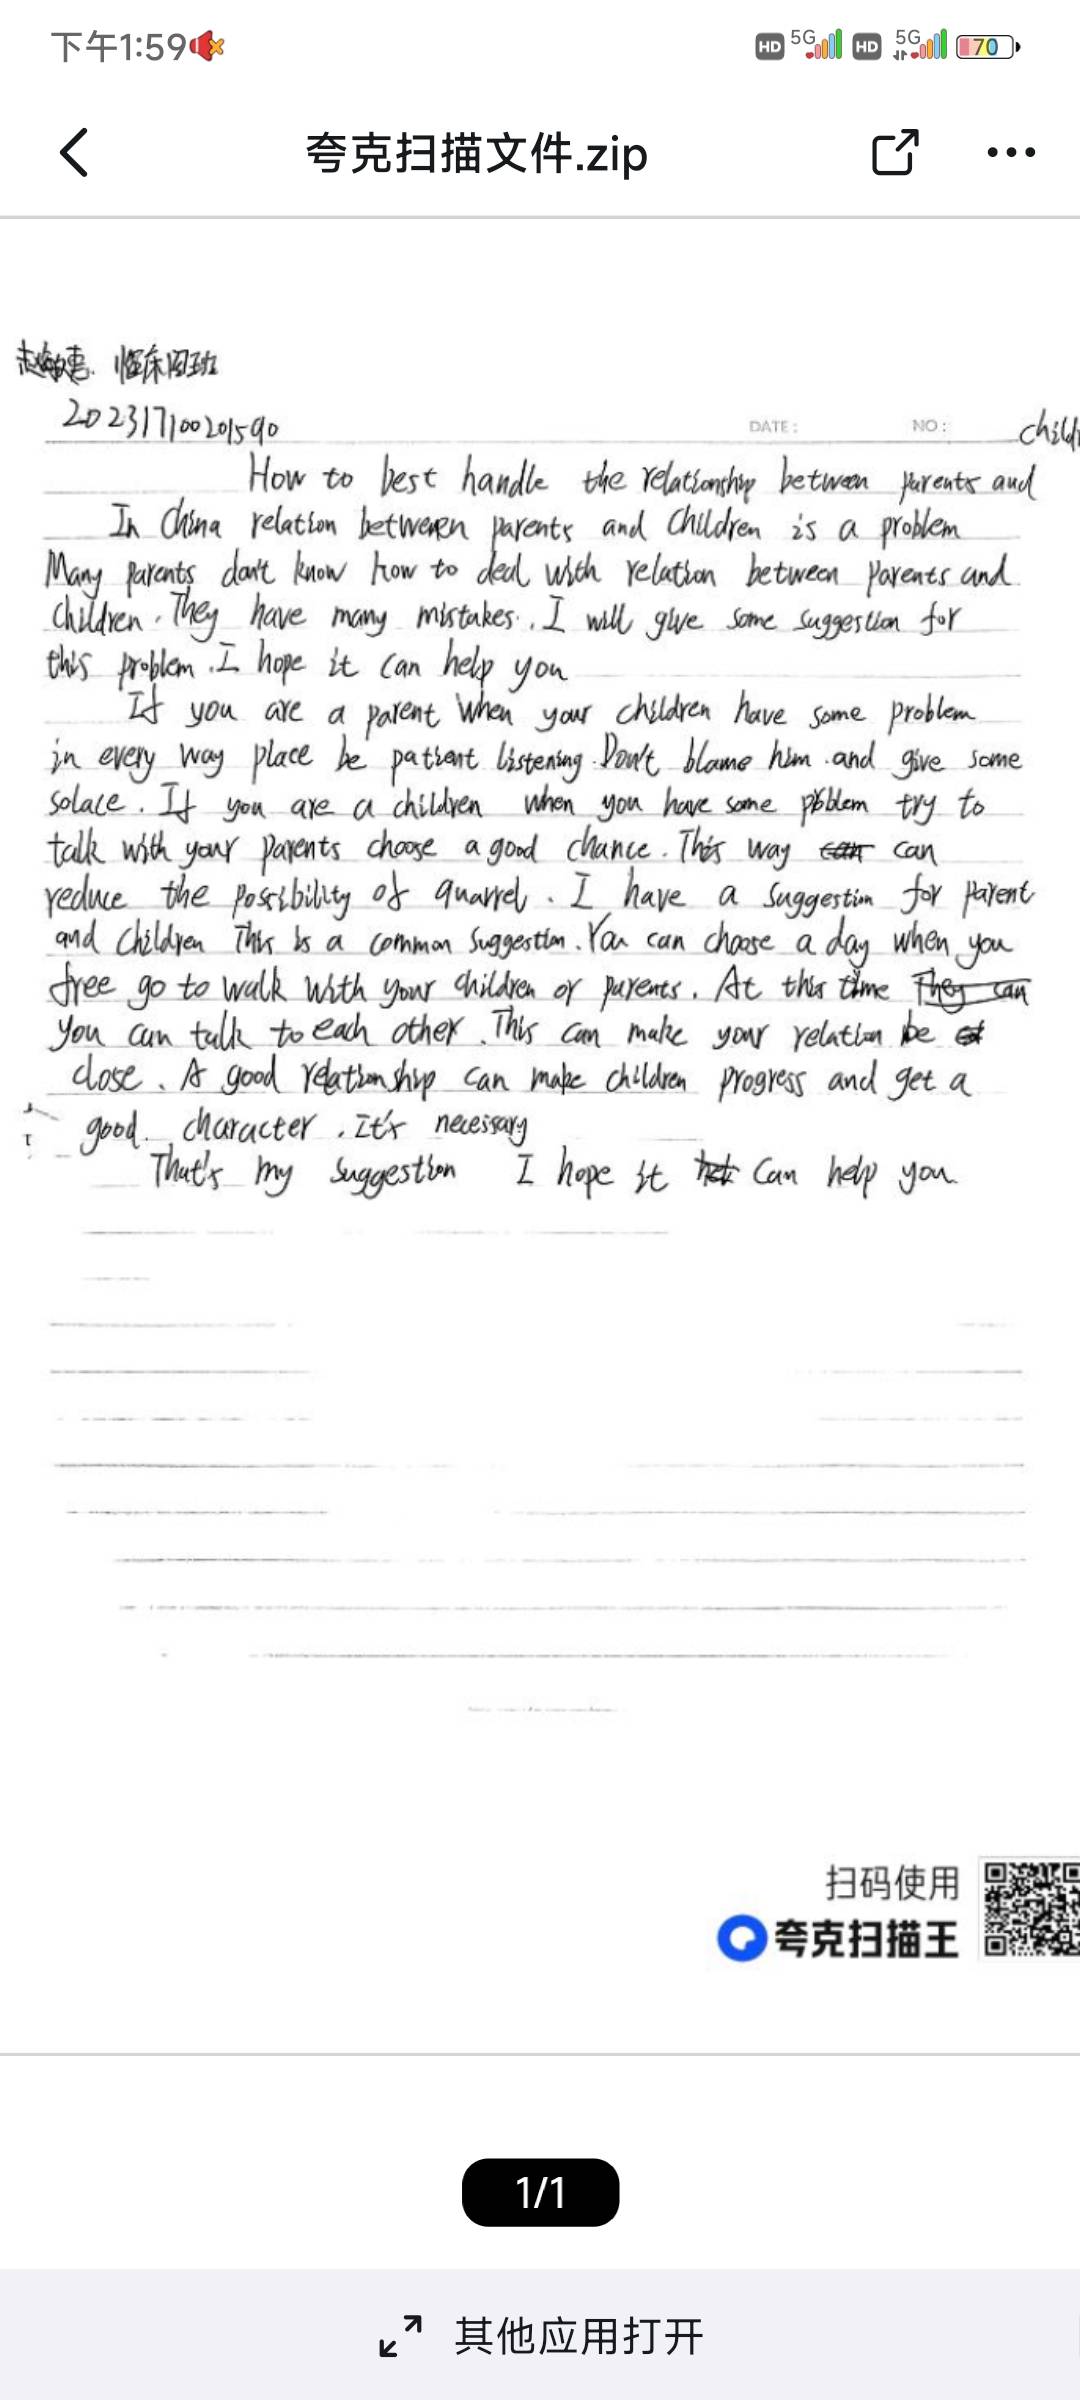 下午1:59
HD 5G HD 5G 70
夸克扫描文件.zip
临床四班
202317100201590
DATE: NO: child
How to best handle the relationship between parents and
In China relation between parents and children is a problem
Many parents don't know how to deal with relation between parents and
children. They have many mistakes. I will give some suggestion for
this problem. I hope it can help you
If you are a parent when your children have some problem
in every way place be patient listening. Don't blame him and give some
solace. If you are a children when you have some problem try to
talk with your parents choose a good chance. This way can can
reduce the possibility of quarrel. I have a suggestion for parent
and children This is a common suggestion. You can choose a day when you
free go to walk with your children or parents. At this time They can
you can talk to each other. This can make your relation be
close. A good relationship can make children progress and get a
good character. It's necessary
That's my suggestion I hope it can help you
扫码使用
夸克扫描王
1/1
其他应用打开